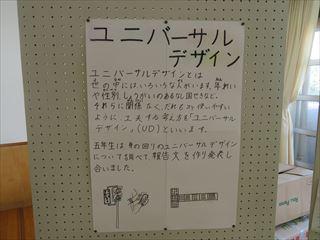 ユニバーサル
デザイン
ユニバーサルデザインとは
世の中には、いろいろな人がいます。年れい
や性別、しょうがいのあるなし、国せきなど、
それらに関係なく、だれもが使いやすい
ように、工夫する考え方を「ユニバーサル
デザイン」(UD)といいます。
五年生は身の回りのユニバーサルデザイン
について調べて、報告文を作り発表し
合いました。